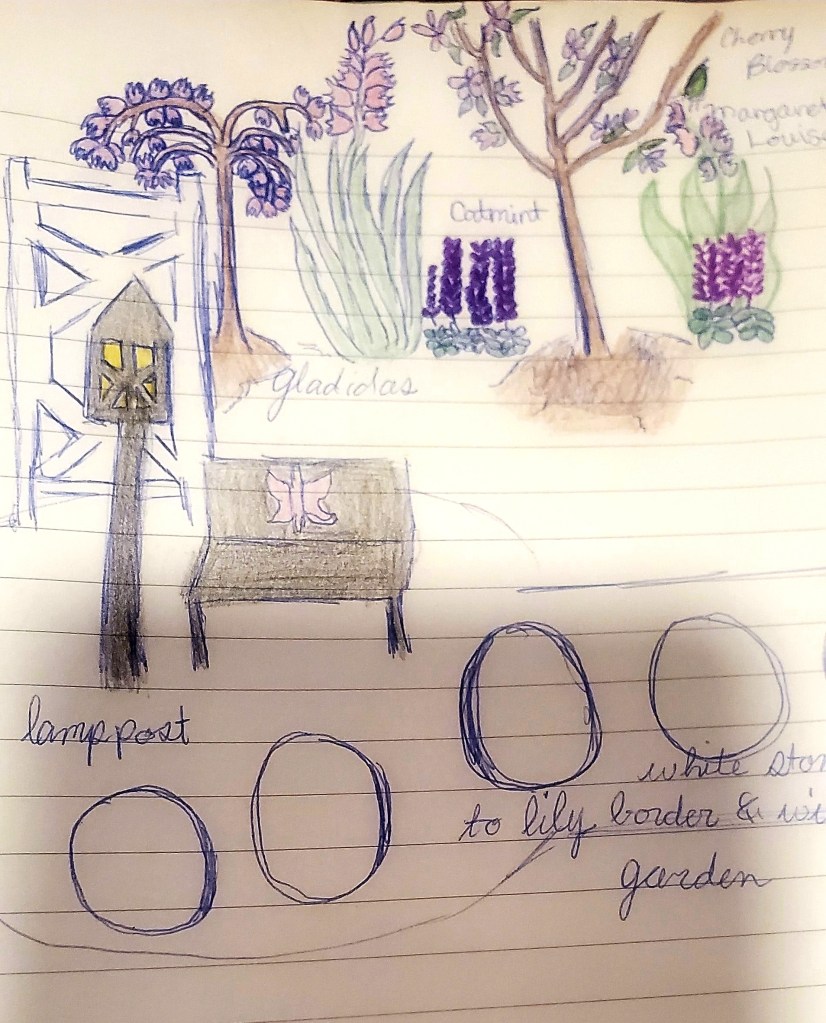 Cherry
Blosso
Margaret
Louis
Catmint
Gladidas
lamp post
white ston
to lily border & wi
garden